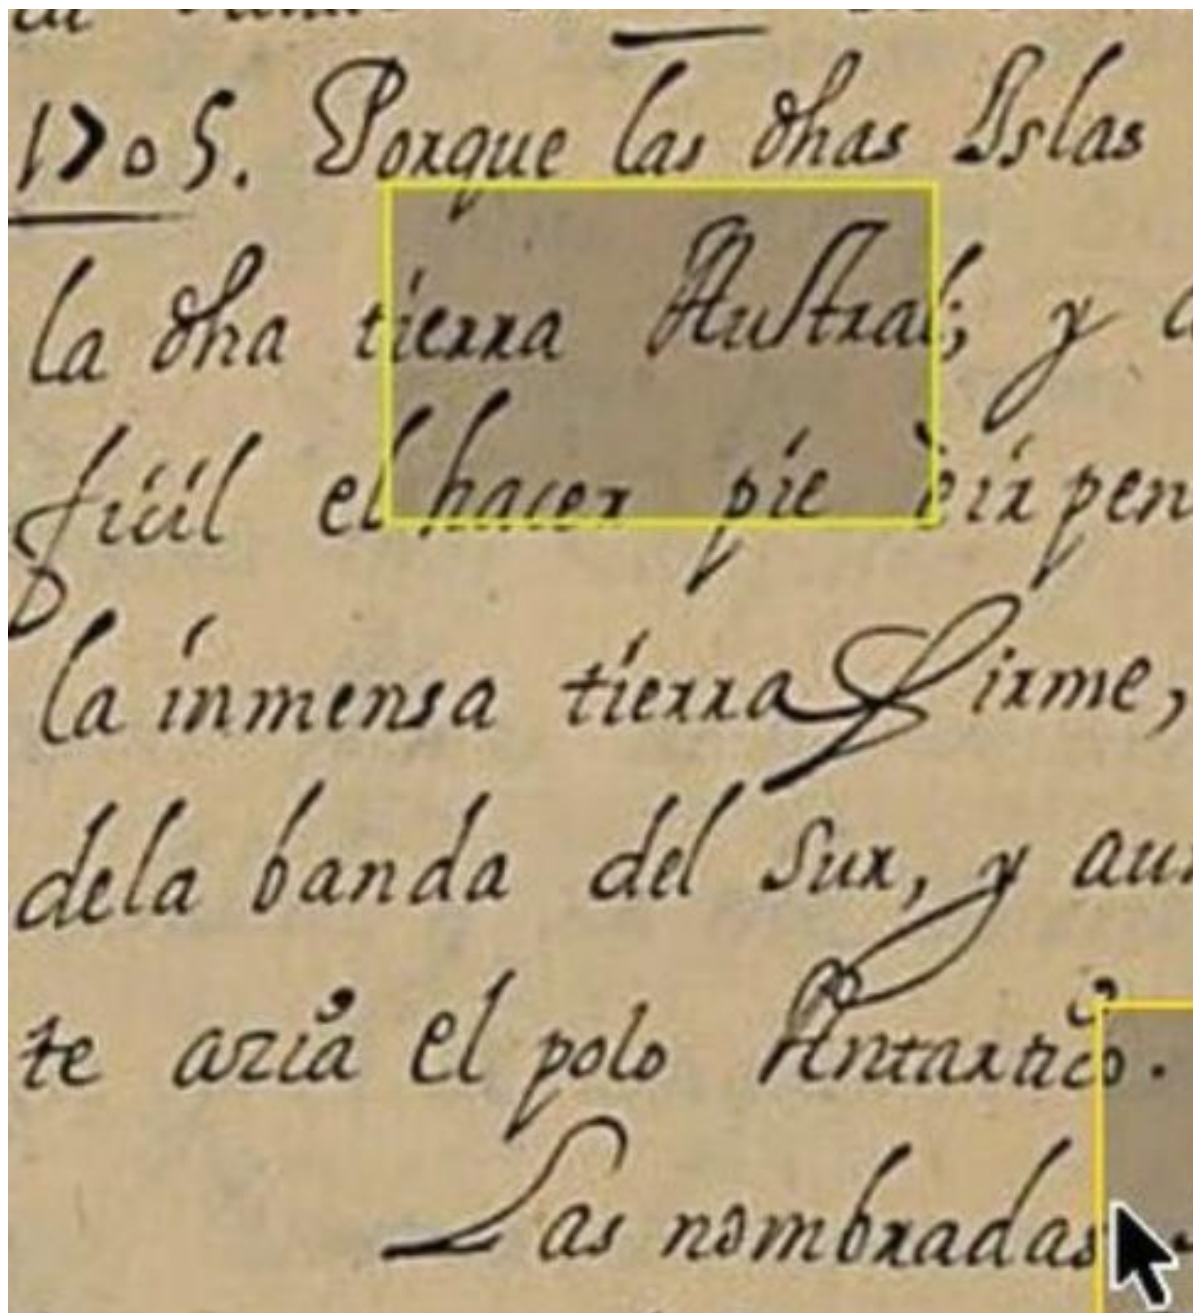 1705. Porque las dhas Islas
la dha tierra Austral; y
ficil el hacer pie è ir pen
la inmensa tierra Firme,
dela banda del Sur, y au
te azia el polo Antartico.
Las nombradas